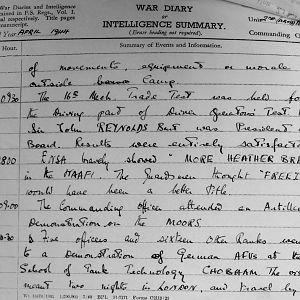 WAR DIARY
or
INTELLIGENCE SUMMARY.
(Erase heading not required).
War Diaries and Intelligence
tained in F.S. Regs., Vol. I.
Title pages
manuscript.
Year APRIL 1944
Unit
Commanding O
Hour.
Summary of Events and Information.
of movements, equipment or morale
outside Camp.
0930 The 165 Mech. Trade Test was held for
the Driving part of Driver Operators Test
Sir John REYNOLDS Bart was President
Board. Results were entirely satisfact
1800 ENSA bravely showed "MORE HEATHER BRE
in the NAAFI. The Guardsmen thought "
would have been a better title.
0900 The Commanding Officer attended an
Demonstration on the MOORS.
30 Five officers and sixteen Other Ranks went
to a Demonstration of German AFVs at the
School of Tank Technology CHOBHAM. The
meant two nights in LONDON, and travel by